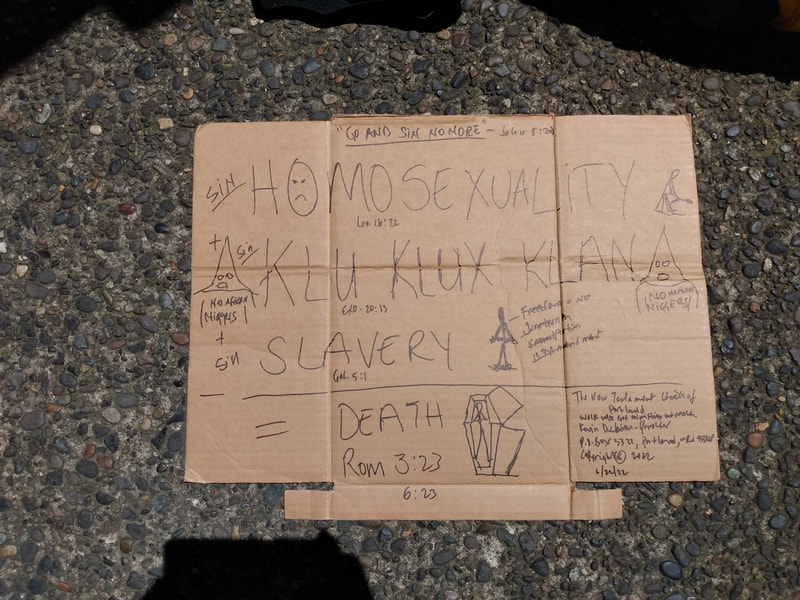 "GO AND SIN NO MORE" - John 8:
sin HOMOSEXUALITY
Lev 18:22
+ sin KLU KLUX KLAN
NO AFRICAN NIGGERS
NO NIGGERS
EXO-20:13
+
sin SLAVERY
Gal. 5:1
Freedom - NO
Juneteenth
Amendment
= DEATH
Rom 3:23
6:23
The New Testament Church of
Portland
Walk with God ministries outreach
Kevin
P.O. Box 5322, Portland,
Copyright © 2022
6/22/22